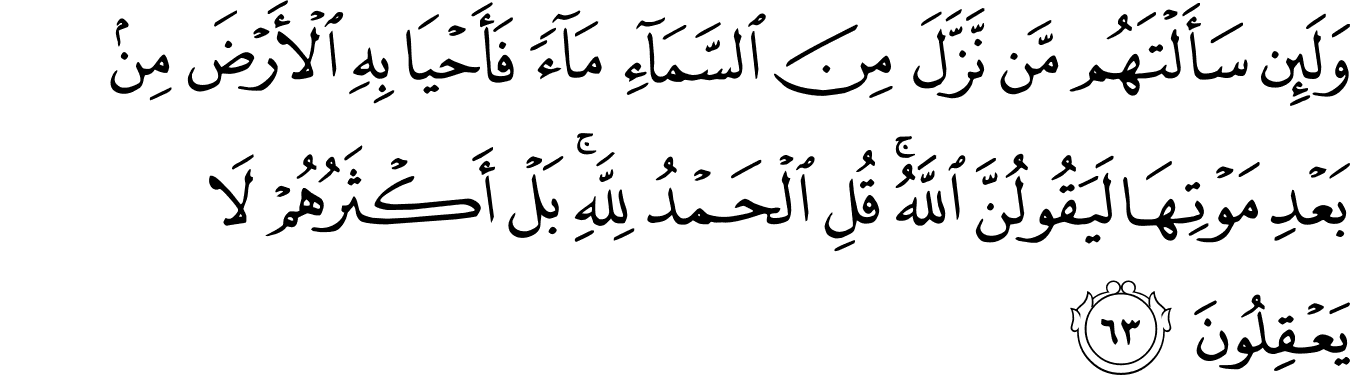 وَلَئِن سَأَلْتَهُم مَّن نَّزَّلَ مِنَ ٱلسَّمَآءِ مَآءً فَأَحْيَا بِهِ ٱلْأَرْضَ مِنۢ
بَعْدِ مَوْتِهَا لَيَقُولُنَّ ٱللَّهُ ۚ قُلِ ٱلْحَمْدُ لِلَّهِ ۚ بَلْ أَكْثَرُهُمْ لَا
يَعْقِلُونَ ٦٣